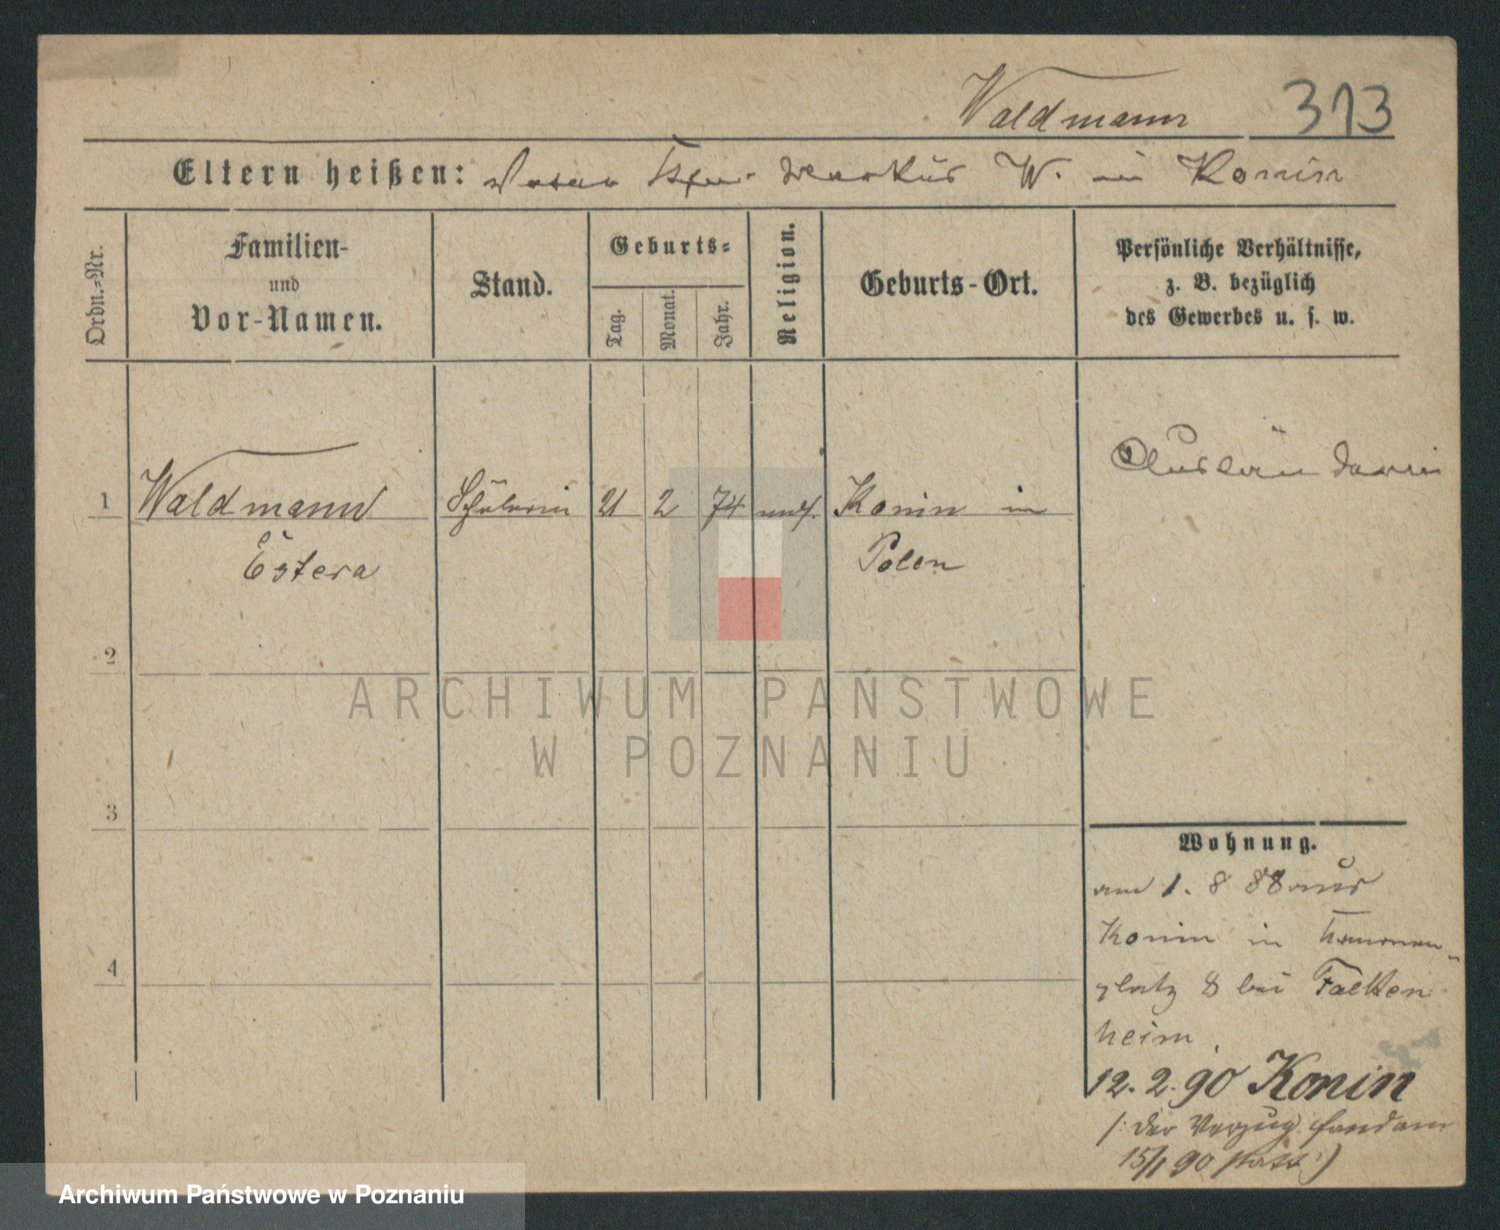 Waldmann 313
Eltern heißen: Markus W. in Konin
Ordn.-Nr.
Familien-
und
Vor-Namen.
Stand.
Geburts-
Tag.
Monat.
Jahr.
Religion.
Geburts-Ort.
Persönliche Verhältnisse,
z. B. bezüglich
des Gewerbes u. s. w.
1 Waldmann Schülerin 21 2 74 mos. Konin in
Estera Polen
Ausländerin
2
3
4
Wohnung.
am 1. 8 88 aus
Konin in
platz 8 bei Falken
heim.
12. 2. 90 Konin
/: der Verzug fand am
15/1 90 statt :)
ARCHIWUM PAŃSTWOWE
W POZNANIU
Archiwum Państwowe w Poznaniu